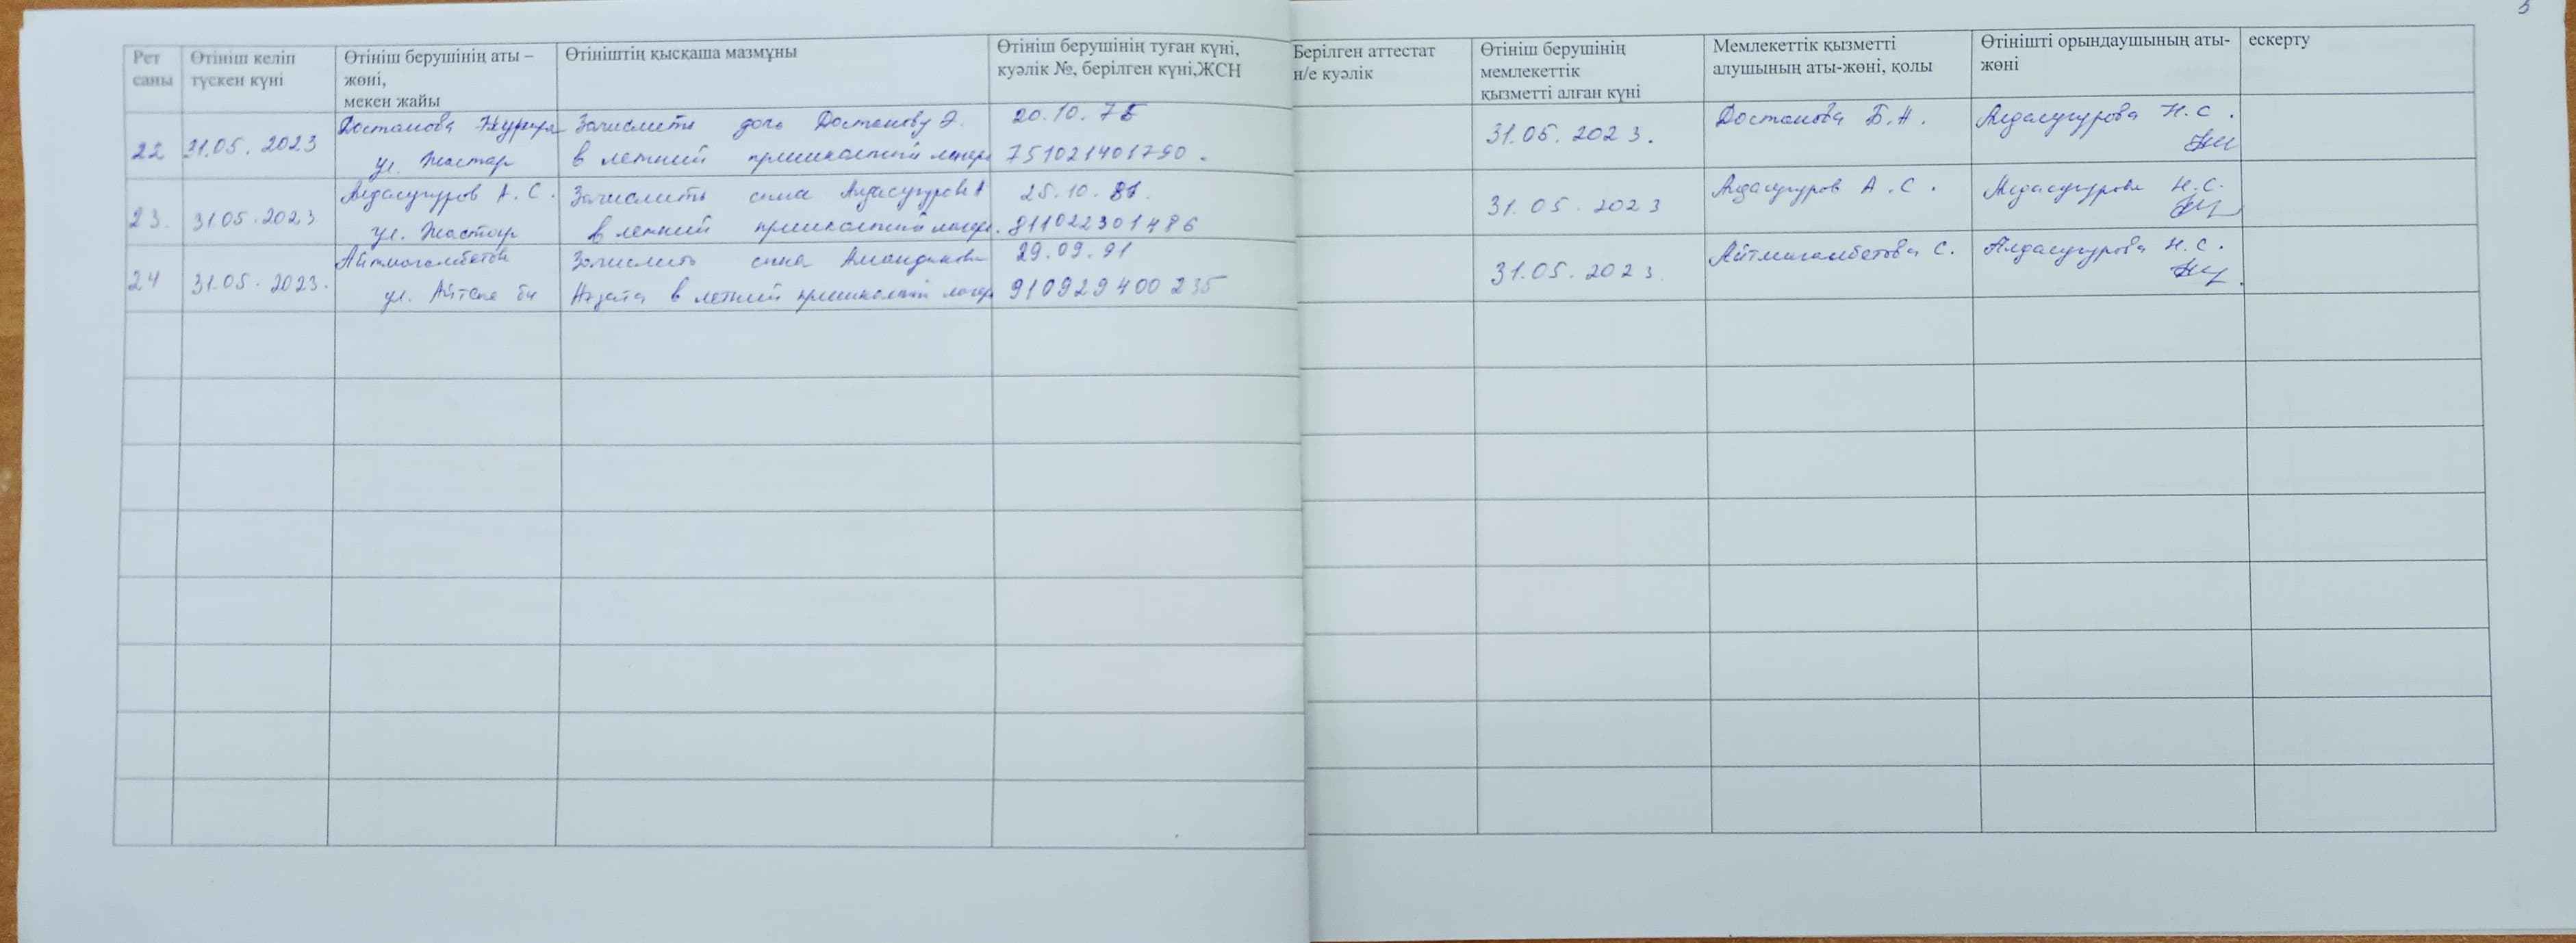 5
Рет
саны
Өтініш келіп
түскен күні
Өтініш берушінің аты –
жөні,
мекен жайы
Өтініштің қысқаша мазмұны
Өтініш берушінің туған күні,
куәлік №, берілген күні,ЖСН
Берілген аттестат
н/е куәлік
Өтініш берушінің
мемлекеттік
қызметті алған күні
Мемлекеттік қызметті
алушының аты-жөні, қолы
Өтінішті орындаушының аты-
жөні
ескерту
22
31.05. 2023
Достанова
ул. Жастар
Зачислить дочь Достанову Э.
в летний пришкольный лагерь
20.10.75
751021401790.
31.05.2023.
Достанова Б.Н.
Алдасугурова Н.С.
23.
31.05.2023
Алдасугуров А.С.
ул. Жастар
Зачислить сына Алдасугурова
в летний пришкольный лагерь.
25.10.81.
811022301486
31.05.2023
Алдасугуров А.С.
Алдасугурова Н.С.
24
31.05.2023.
Айтмагамбетов
ул. Айтеке би
Зачислить сына
в летний пришкольный лагерь
29.09.91
910929400235
31.05.2023.
Айтмагамбетова С.
Алдасугурова Н.С.